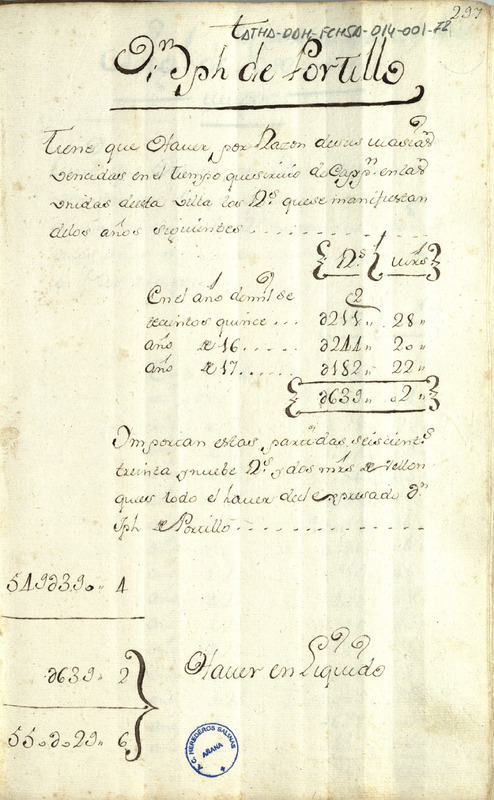 297
ATHA-DAH-FCHSA-014-001-72
Dn Jph de Portillo
Tiene que Hauer, por Razon desus
vencidas en el tiempo quesirvio de Cappn. enlas
unidas desta villa los Rs. quese manifiestan
delos años siguientes
Rs. mrs
En el año demil se
tecientos quince ... ∂211,, 28,,
año de 16 ..... ∂244,, 20,,
año de 17 ...... ∂182,, 22,,
∂639,, ,2,,
Importan estas partidas, seiscients.
treinta ynuebe Rs. y dos mrs de vellon
quees todo el hauer del expresado Dn
Jph de Portillo
549∂390,, 4
∂639,, 2
Hauer en Liquido
550∂029,, 6
A.C. HEREDEROS SALINAS
AÑANA